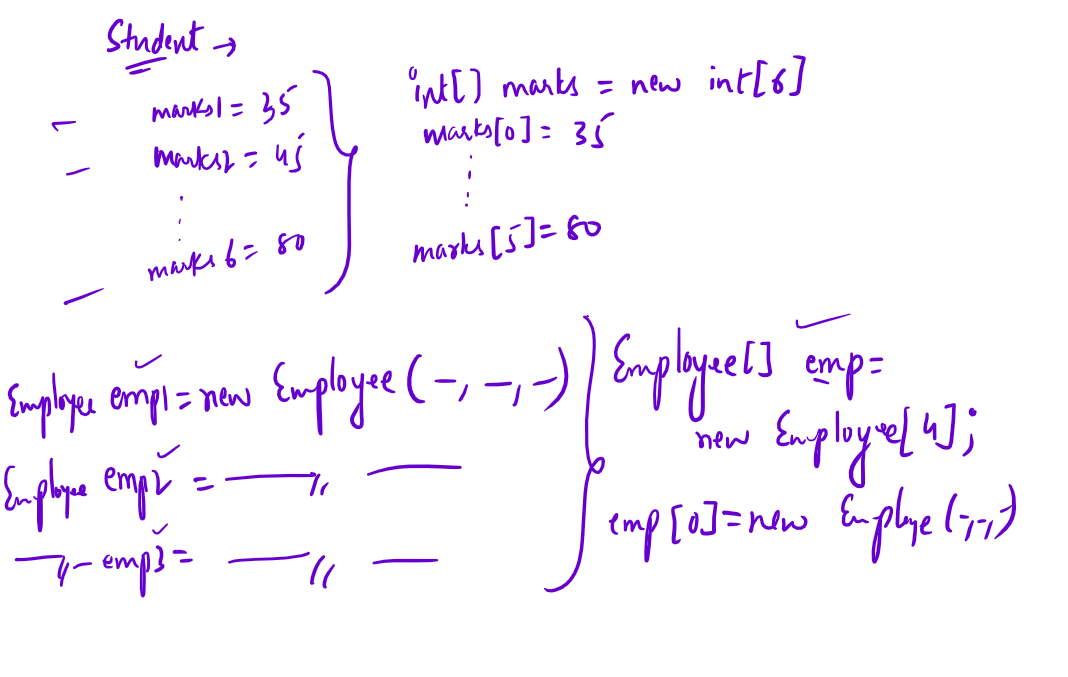 Student →
marks1 = 35
marks2 = 45
marks6 = 80
int[] marks = new int[6]
marks[0] = 35
marks[5] = 80
Employee emp1 = new Employee(-, -, -)
Employee emp2 = —〃 —
—〃— emp3 = —〃 —
Employee[] emp =
new Employee[4];
emp[0] = new Employe(-,-,-)